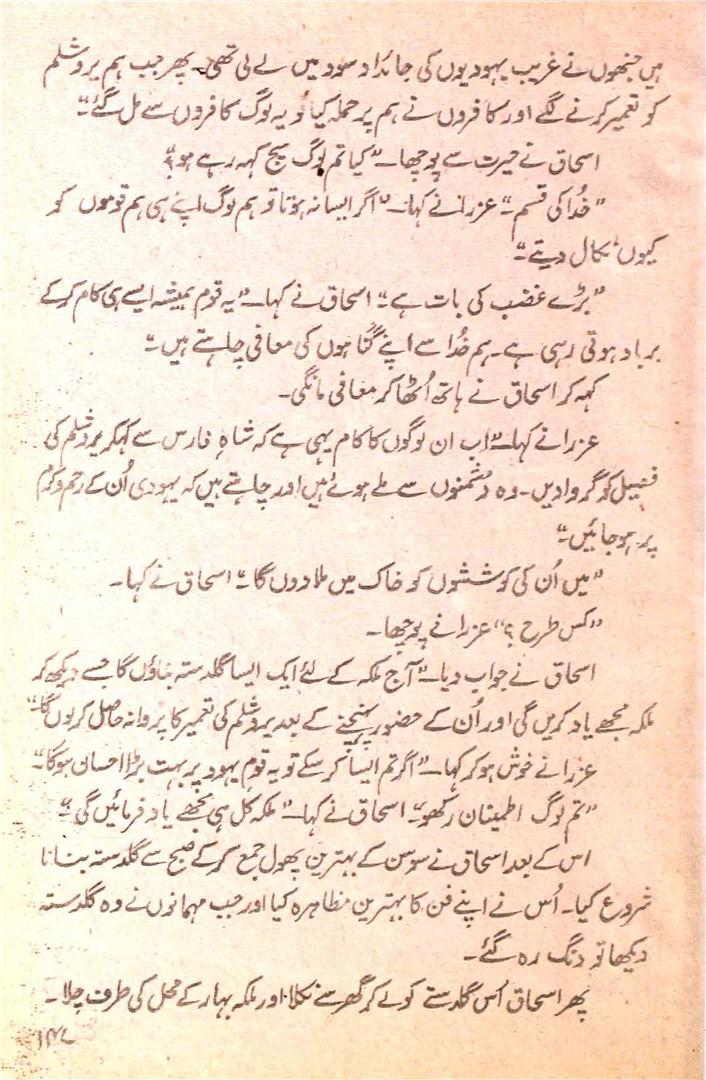 ہیں جنھوں نے غریب یہودیوں کی جائداد سود میں لے لی تھی۔ پھر جب ہم یروشلم
کو تعمیر کرنے لگے اور کافروں نے ہم پر حملہ کیا تو یہ لوگ کافروں سے مل گئے“
اسحاق نے حیرت سے پوچھا۔ ”کیا تم لوگ سچ کہہ رہے ہو؟
”خُدا کی قسم۔“ عزرا نے کہا۔ ”اگر ایسا نہ ہوتا تو ہم لوگ اپنے ہی ہم قوموں کو
کیوں نکال دیتے۔“
”بڑے غضب کی بات ہے۔“ اسحاق نے کہا۔ ”یہ قوم ہمیشہ ایسے ہی کام کرکے
برباد ہوتی رہی ہے۔ ہم خُدا سے اپنے گناہوں کی معافی چاہتے ہیں۔“
کہہ کر اسحاق نے ہاتھ اُٹھا کر معافی مانگی۔
عزرا نے کہا۔ ”اب ان لوگوں کا کام یہی ہے کہ شاہِ فارس سے کہکر یروشلم کی
فصیل کو گروا دیں۔ وہ دشمنوں سے ملے ہوئے ہیں اور چاہتے ہیں کہ یہودی اُن کے رحم و کرم
پر ہو جائیں۔“
”میں اُن کی کوششوں کو خاک میں ملا دوں گا۔“ اسحاق نے کہا۔
”کس طرح؟“ عزرا نے پوچھا۔
اسحاق نے جواب دیا۔ ”آج ملکہ کے لئے ایک ایسا گلدستہ بناؤں گا جسے دیکھ کر
ملکہ مجھے یاد کریں گی اور اُن کے حضور پہنچنے کے بعد یروشلم کی تعمیر کا پروانہ حاصل کر لوں گا۔“
عزرا نے خوش ہو کر کہا۔ ”اگر تم ایسا کر سکے تو یہ قومِ یہود پر بہت بڑا احسان ہوگا۔“
”تم لوگ اطمینان رکھو۔“ اسحاق نے کہا۔ ”ملکہ کل ہی مجھے یاد فرمائیں گی۔“
اس کے بعد اسحاق نے سوسن کے بہترین پھول جمع کر کے صبح سے گلدستہ بنانا
شروع کیا۔ اُس نے اپنے فن کا بہترین مظاہرہ کیا اور جب مہمانوں نے وہ گلدستہ
دیکھا تو دنگ رہ گئے۔
پھر اسحاق اُس گلدستے کو لے کر گھر سے نکلا اور ملکہ بہار کے محل کی طرف چلا۔
۱۴۷